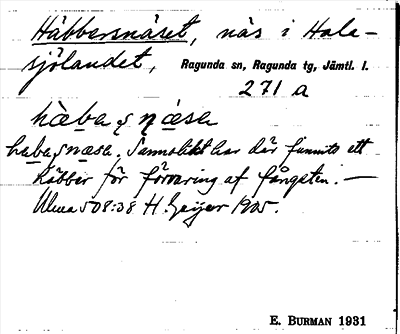 Häbbersnäset, näs i Hola-
sjölandet, Ragunda sn, Ragunda tg, Jämtl. l.
271 a
hàba ş næsa
haba, s næsa. Sannolikt har där funnits ett
häbber för förvaring af fångsten. —
Ulma 508:38 H. Geijer 1905.
E. BURMAN 1931